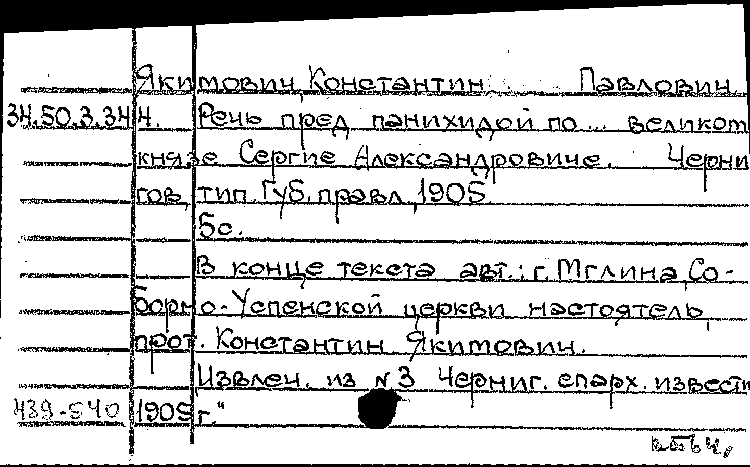 Якимович, Константин Павлович
34.50.3.344. Речь пред панихидой по... великом
князе Сергие Александровиче. Черни
гов, тип. Губ. правл., 1905.
5с.
В конце текста авт.: г. Мглина, Со-
борно-Успенской церкви настоятель,
прот. Константин Якимович.
Извлеч. из №3 Черниг. епарх. извести
439-540 1905г."